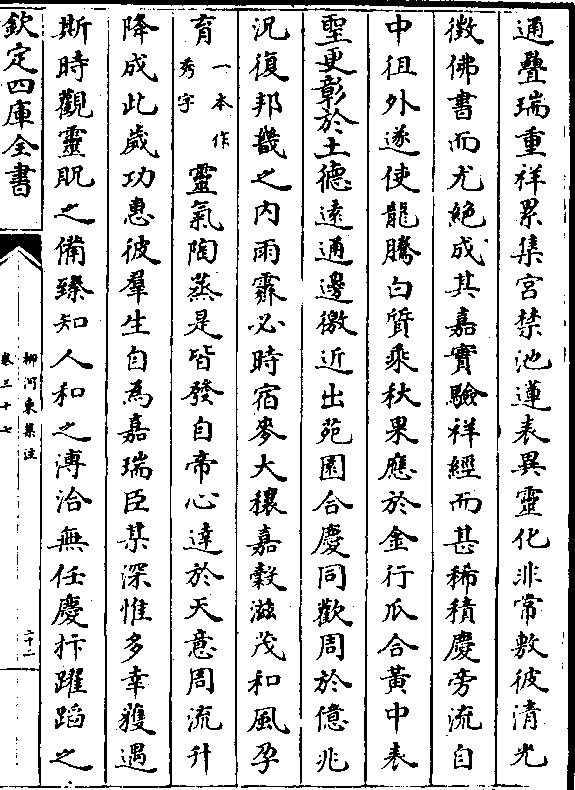 通疊瑞重祥累集宮禁池蓮表異靈化非常敷彼清光
徴佛書而尤絶成其嘉實驗祥經而甚稀積慶旁流自
中徂外遂使龍騰白質乘秋果應於金行瓜合黃中表
聖更彰於土德遠通邊徼近出苑囿合慶同歡周於億兆
況復邦畿之内雨霽必時宿麥大穰嘉穀滋茂和風孕
育一本作秀字靈氣陶蒸是皆發自帝心達於天意周流升
降成此歲功惠彼羣生自為嘉瑞臣某深惟多幸獲遇
斯時觀靈貺之備臻知人和之溥洽無任慶抃躍蹈之
欽定四庫全書
柳河東集注
卷三十七
二十二